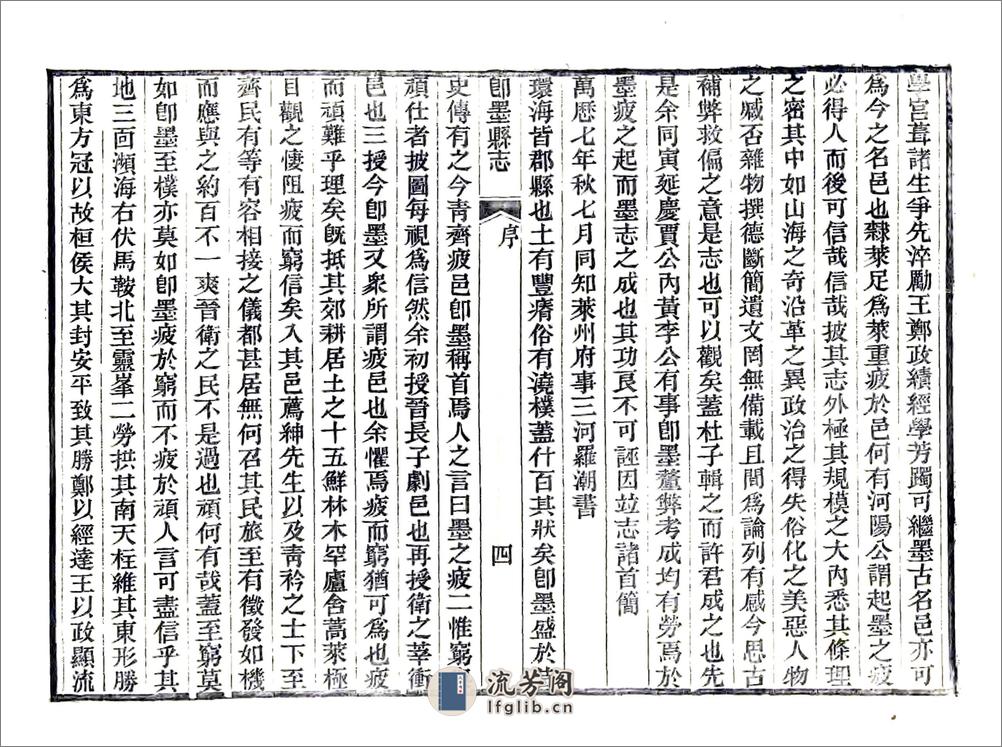 學宮葺諸生爭先淬勵王鄭政績經學芳躅可繼墨古名邑亦可
為今之名邑也隸萊足為萊重疲於邑何有河陽公謂起墨之疲
必得人而後可信哉信哉披其志外極其規模之大內悉其條理
之密其中如山海之奇沿革之異政治之得失俗化之美惡人物
之臧否雜物撰德斷簡遺文罔無備載且間為論列有感今思古
補弊救偏之意是志也可以觀矣蓋杜子輯之而許君成之也先
是余同寅延慶賈公內黃李公有事卽墨釐弊考成均有勞焉於
墨疲之起而墨志之成也其功良不可誣因竝志諸首簡
萬歷七年秋七月同知萊州府事三河羅潮書
環海皆郡縣也土有豐瘠俗有澆樸蓋什百其狀矣卽墨盛於古
卽墨縣志
序
四
史傳有之今青齊疲邑卽墨稱首焉人之言曰墨之疲二惟窮與
頑仕者披圖每視為信然余初授晉長子劇邑也再授衛之莘衝
邑也三授今卽墨又衆所謂疲邑也余懼焉疲而窮猶可為也疲
而頑難乎理矣旣抵其郊耕居土之十五鮮林木罕廬舍蒿萊極
目觀之悽阻疲而窮信矣入其邑薦紳先生以及青衿之士下至
齊民有等有容相接之儀都甚居無何召其民旅至有徵發如機
而應與之約百不一爽晉衛之民不是過也頑何有哉蓋至窮莫
如卽墨至樸亦莫如卽墨疲於窮而不疲於頑人言可盡信乎其
地三面瀕海右伏馬鞍北至靈峯二勞拱其南天柱維其東形勝
為東方冠以故桓侯大其封安平致其勝鄭以經達王以政顯流
流芳阁
lfglib.cn